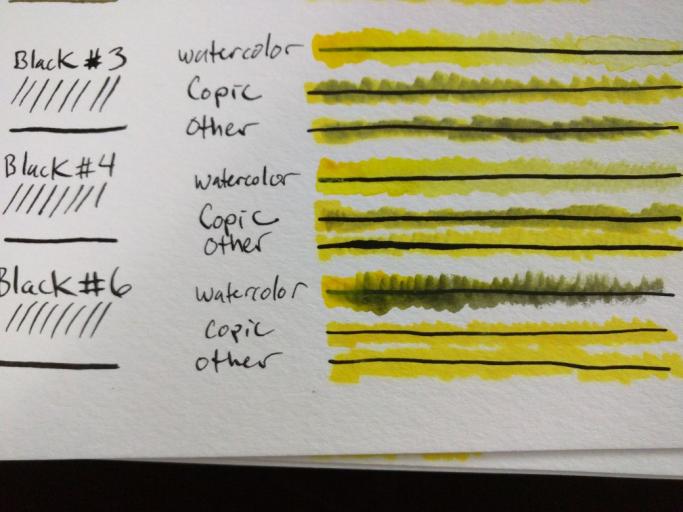 Black #3 watercolor
Copic
Other
Black #4 watercolor
Copic
Other
Black #6 watercolor
Copic
Other